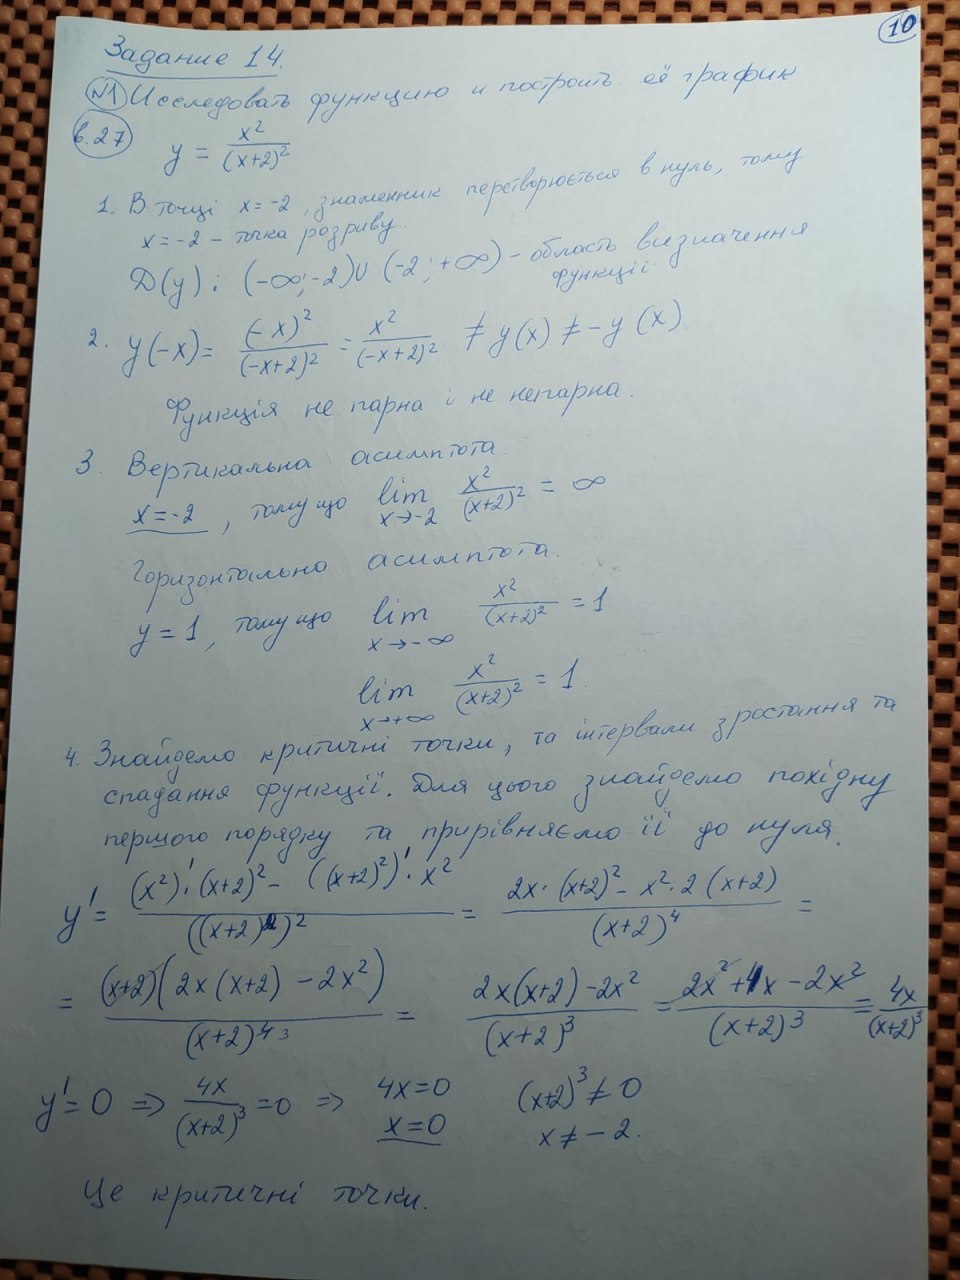 10
Задание 14.
№1 Исследовать функцию и построить её график
в.27 y = x²/(x+2)²
1. В точці x = -2, знаменник перетворюється в нуль, тому
x = -2 – точка розриву.
D(y): (-∞; -2)∪(-2; +∞) – область визначення
функції.
2. y(-x) = (-x)²/(-x+2)² = x²/(-x+2)² ≠ y(x) ≠ -y(x).
Функція не парна і не непарна.
3. Вертикальна асимптота.
x = -2, тому що lim x→-2 x²/(x+2)² = ∞
Горизонтальна асимптота.
y = 1, тому що lim x→-∞ x²/(x+2)² = 1
lim x→+∞ x²/(x+2)² = 1.
4. Знайдемо критичні точки, та інтервали зростання та
спадання функції. Для цього знайдемо похідну
першого порядку та прирівняємо її до нуля.
y' = ((x²)'·(x+2)² - ((x+2)²)'·x²)/((x+2)²)² = (2x·(x+2)² - x²·2(x+2))/(x+2)⁴ =
= (x+2)(2x(x+2) - 2x²)/(x+2)⁴ ³ = (2x(x+2) - 2x²)/(x+2)³ = (2x² + 4x - 2x²)/(x+2)³ = 4x/(x+2)³
y' = 0 => 4x/(x+2)³ = 0 => 4x = 0 (x+2)³ ≠ 0
x = 0 x ≠ -2.
Це критичні точки.